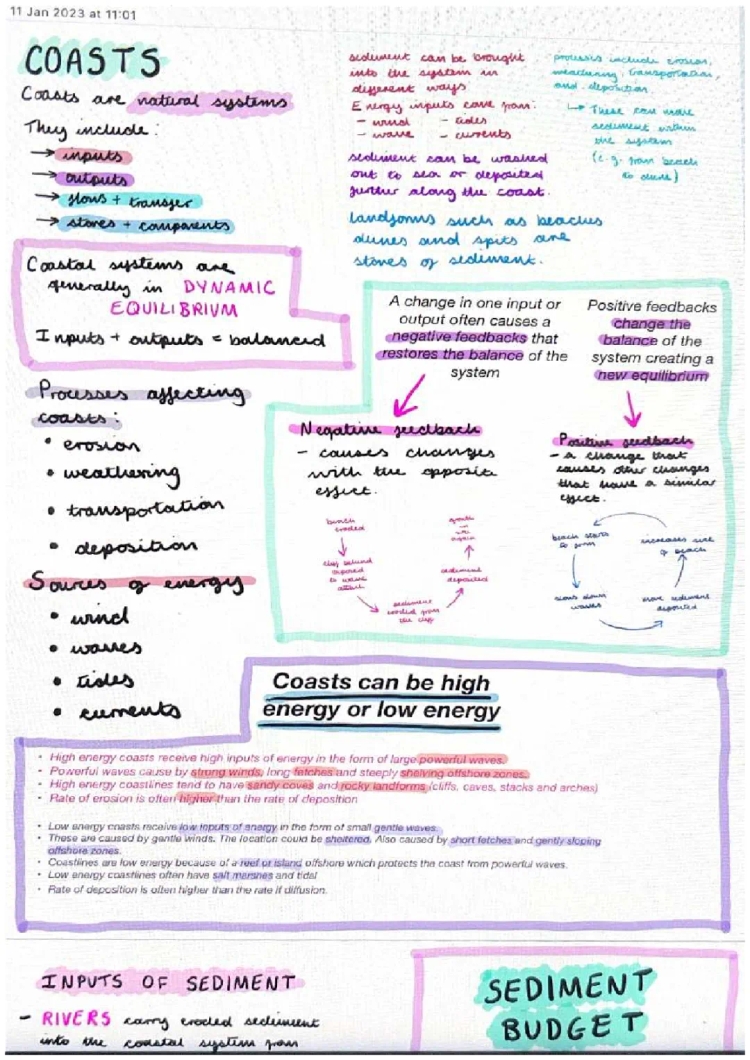 11 Jan 2023 at 11:01
COASTS
Coasts are natural systems
They include:
→ inputs
→ outputs
→ flows + transfer
→ stores + components
sediment can be brought
into the system in
different ways
Energy inputs come from:
- wind - tides
- wave - currents
sediment can be washed
out to sea or deposited
further along the coast.
landforms such as beaches
dunes and spits are
stores of sediment.
processes include erosion,
weathering, transportation
and deposition
↳ These can move
sediment within
the system
(e.g. from beach
to dune)
Coastal systems are
generally in DYNAMIC
EQUILIBRIUM
Inputs + outputs = balanced
A change in one input or
output often causes a
negative feedbacks that
restores the balance of the
system
Positive feedbacks
change the
balance of the
system creating a
new equilibrium
Negative feedback
- causes changes
with the opposite
effect.
beach
eroded
cliff behind
exposed
to wave
attack
sediment
eroded from
the cliff
sediment
deposited
growth
again
Positive feedback
- a change that
causes other changes
that have a similar
effect.
beach starts
to form
slows down
waves
more sediment
deposited
increases size
of beach
Processes affecting
coasts:
• erosion
• weathering
• transportation
• deposition
Sources of energy
• wind
• waves
• tides
• currents
Coasts can be high
energy or low energy
• High energy coasts receive high inputs of energy in the form of large powerful waves.
• Powerful waves cause by strong winds, long fetches and steeply shelving offshore zones.
• High energy coastlines tend to have sandy coves and rocky landforms (cliffs, caves, stacks and arches)
• Rate of erosion is often higher than the rate of deposition
• Low energy coasts receive low inputs of energy in the form of small gentle waves.
• These are caused by gentle winds. The location could be sheltered. Also caused by short fetches and gently sloping
offshore zones.
• Coastlines are low energy because of a reef or island offshore which protects the coast from powerful waves.
• Low energy coastlines often have salt marshes and tidal
• Rate of deposition is often higher than the rate if diffusion.
INPUTS OF SEDIMENT
- RIVERS carry eroded sediment
into the coastal system from
SEDIMENT
BUDGET